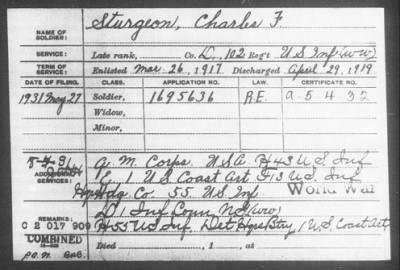 NAME OF SOLDIER: Sturgeon, Charles F
SERVICE: Late rank, Co. D, 102 Reg't U S Inf (ww)
TERM OF SERVICE: Enlisted Mar. 26, 1917 Discharged April 29, 1919
DATE OF FILING. CLASS. APPLICATION NO. LAW. CERTIFICATE NO.
1931 May 27 Soldier, 1695636 A.E. a 5 4 32
Widow,
Minor,
5-4-31 A. M. Corps. U S A.
ADDITIONAL SERVICES: 1 U S Coast Art U S Inf
Hdq Co. 55 U S Inf World War
REMARKS: D 1 Inf Conn N G (ww)
C 2 017 909 H 55 U S Inf, Det 1 U S Coast Art
COMBINED
Died , 1 , at